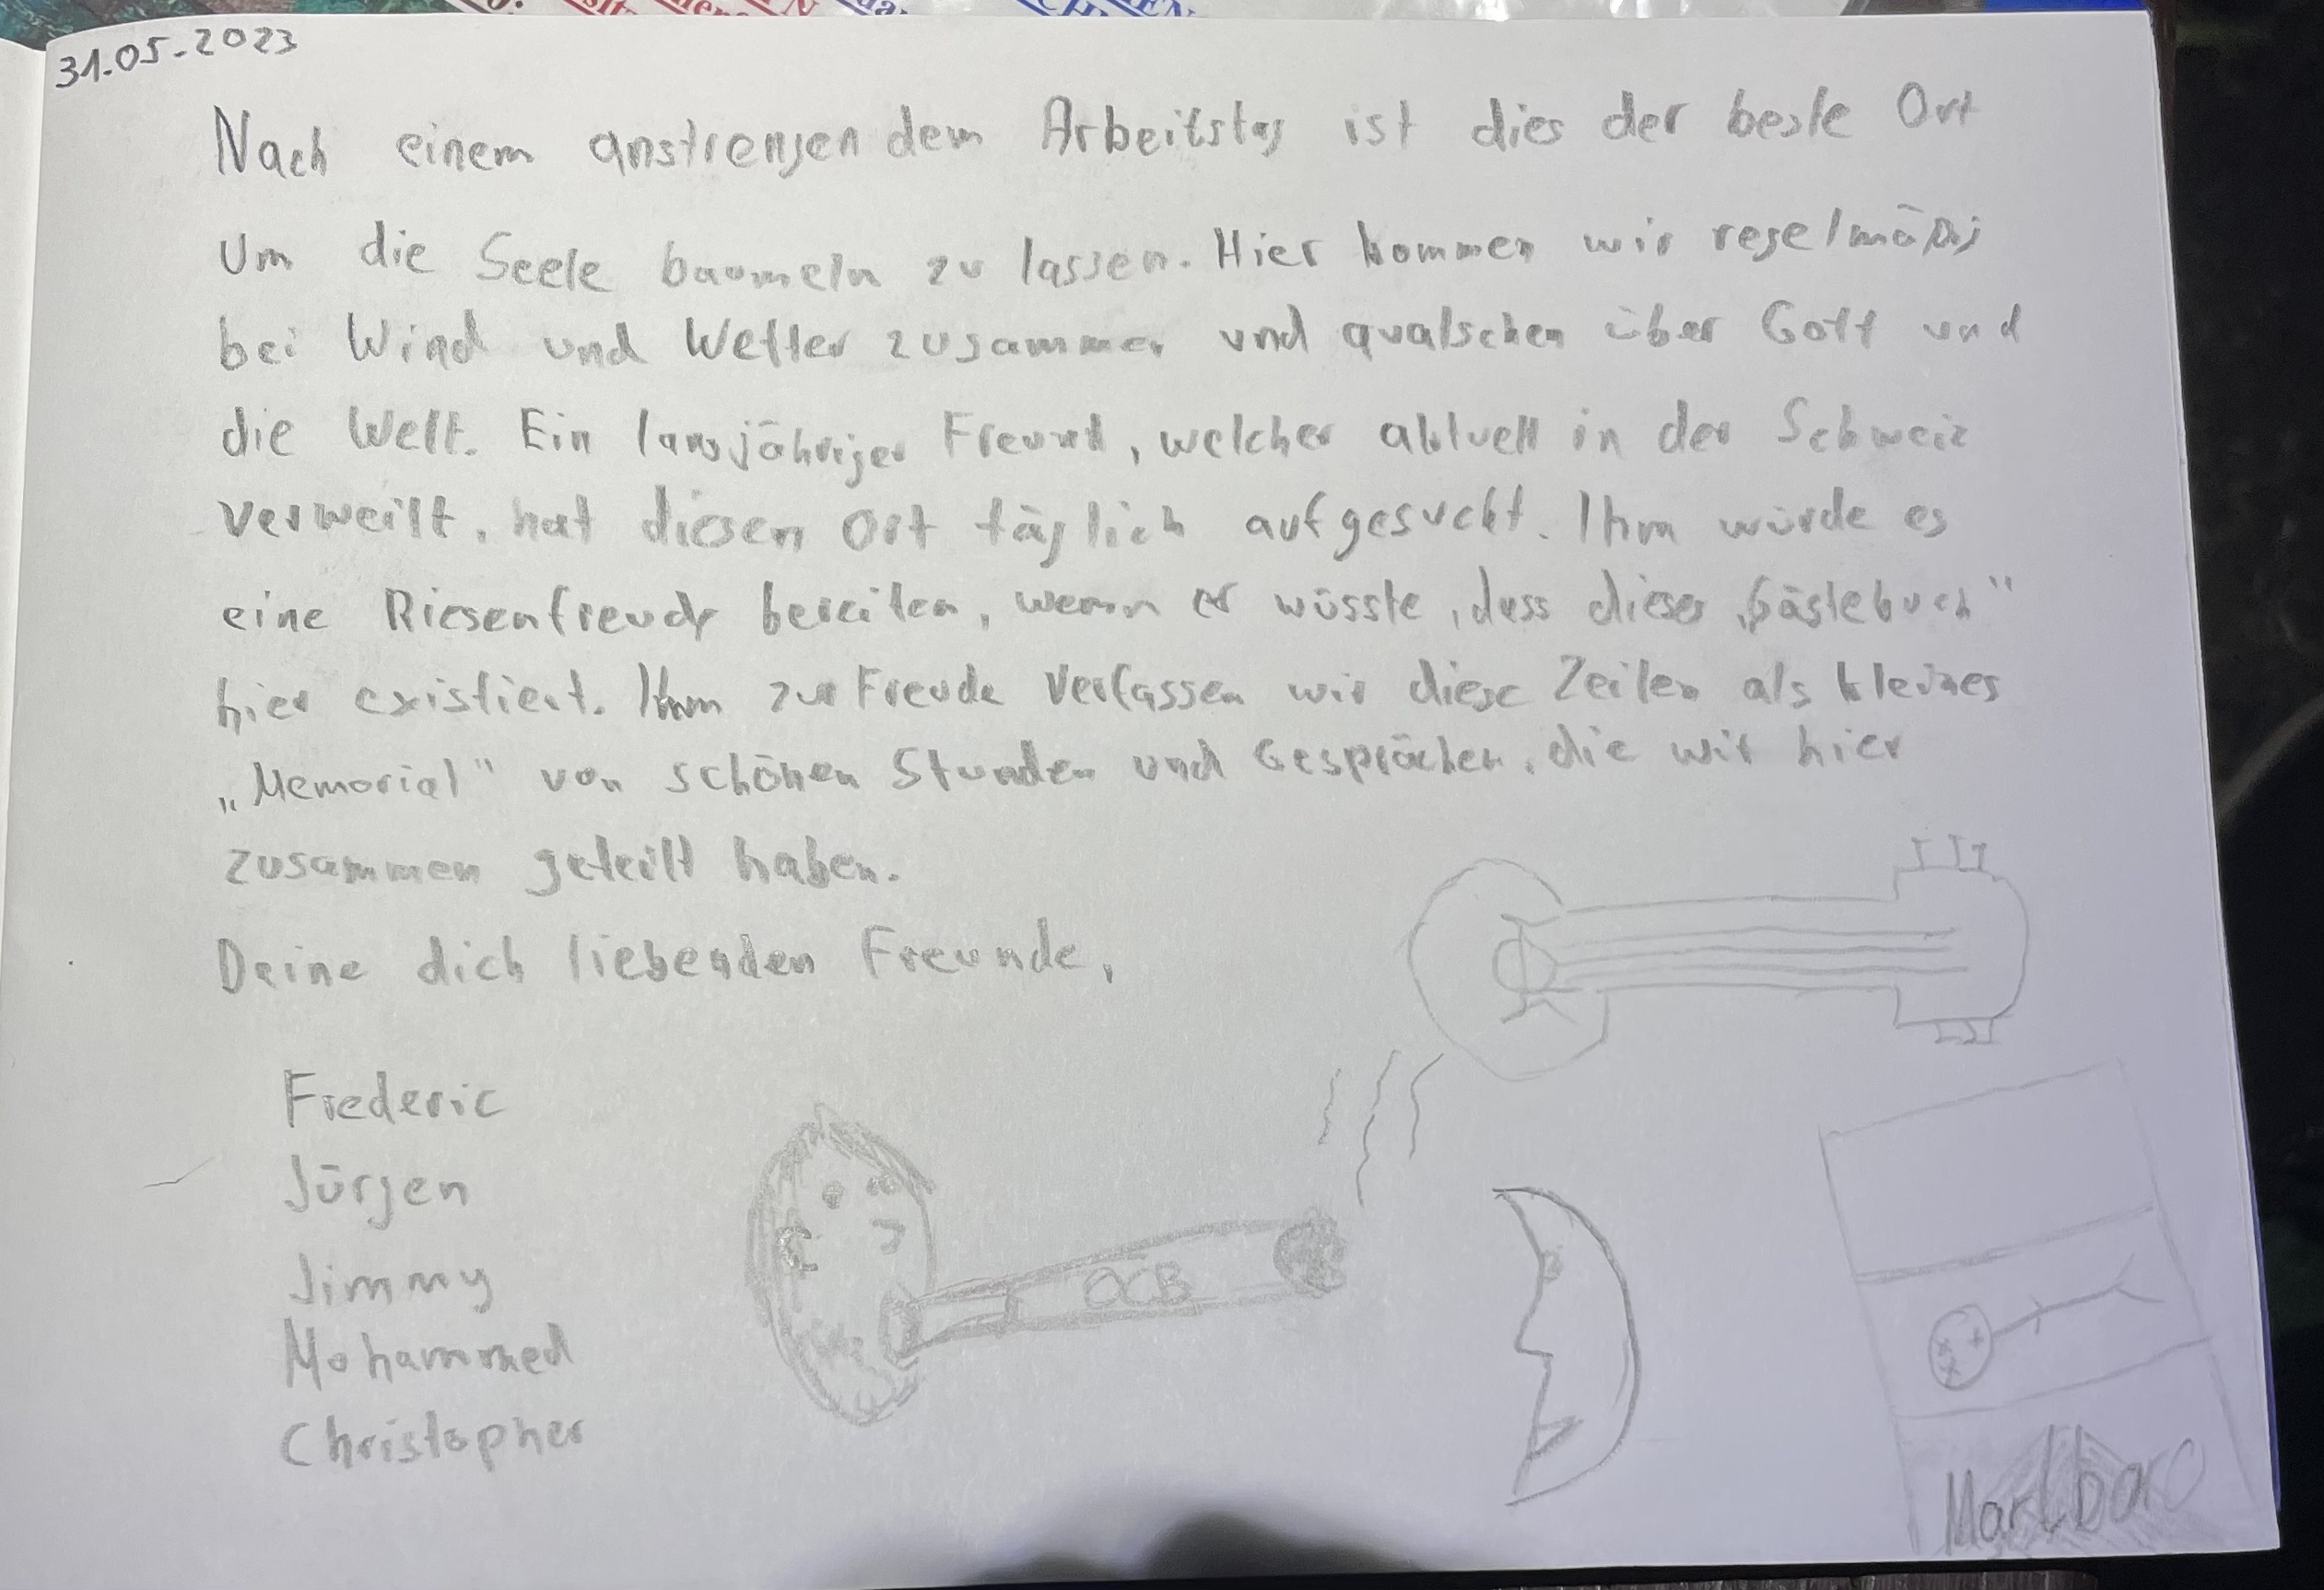 31.05.2023
Nach einem anstrengendem Arbeitstag ist dies der beste Ort
Um die Seele baumeln zu lassen. Hier kommen wir regelmäßig
bei Wind und Wetter zusammen und quatschen über Gott und
die Welt. Ein langjähriger Freund, welcher aktuell in der Schweiz
verweilt, hat diesen Ort täglich aufgesucht. Ihm würde es
eine Riesenfreude bereiten, wenn er wüsste, dass dieses „Gästebuch“
hier existiert. Ihm zur Freude verfassen wir diese Zeilen als kleines
„Memorial“ von schönen Stunden und Gesprächen, die wir hier
zusammen geteilt haben.
Deine dich liebenden Freunde,
Frederic
Jürgen
Jimmy
Mohammed
Christopher
OCB
Marlboro